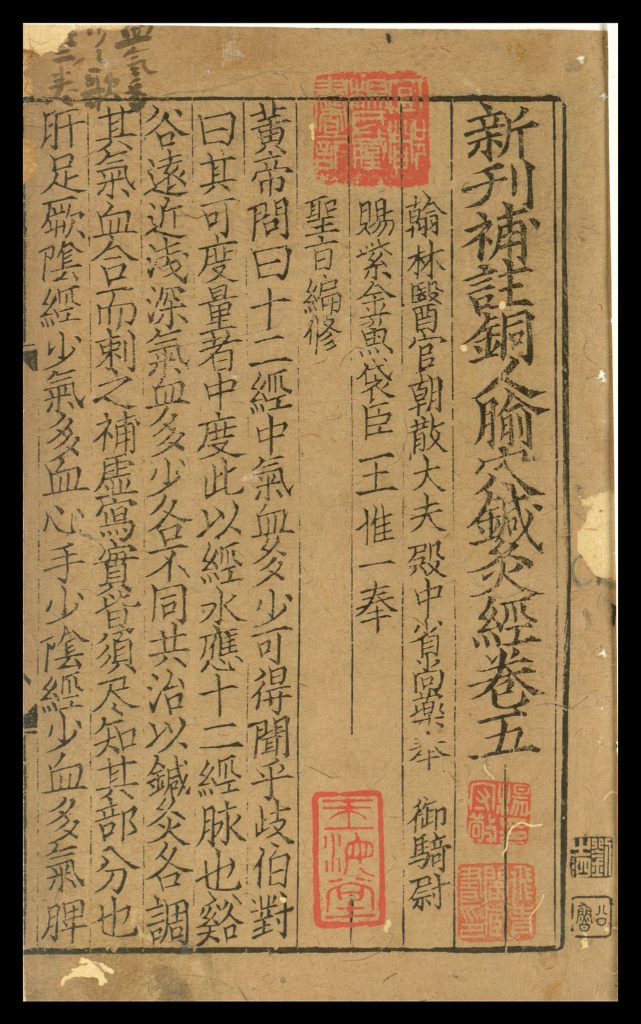 新刊補註銅人腧穴鍼灸經卷五
翰林醫官朝散大夫殿中省尚藥奉 御騎尉
賜紫金魚袋臣王惟一奉
聖旨編修
黃帝問曰十二經中氣血多少可得聞乎歧伯對
曰其可度量者中度此以經水應十二經脉也谿
谷遠近淺深氣血多少各不同共治以鍼灸各調
其氣血合而刺之補虛寫實皆須尽知其部分也
肝足厥陰經少氣多血心手少陰經少血多氣脾